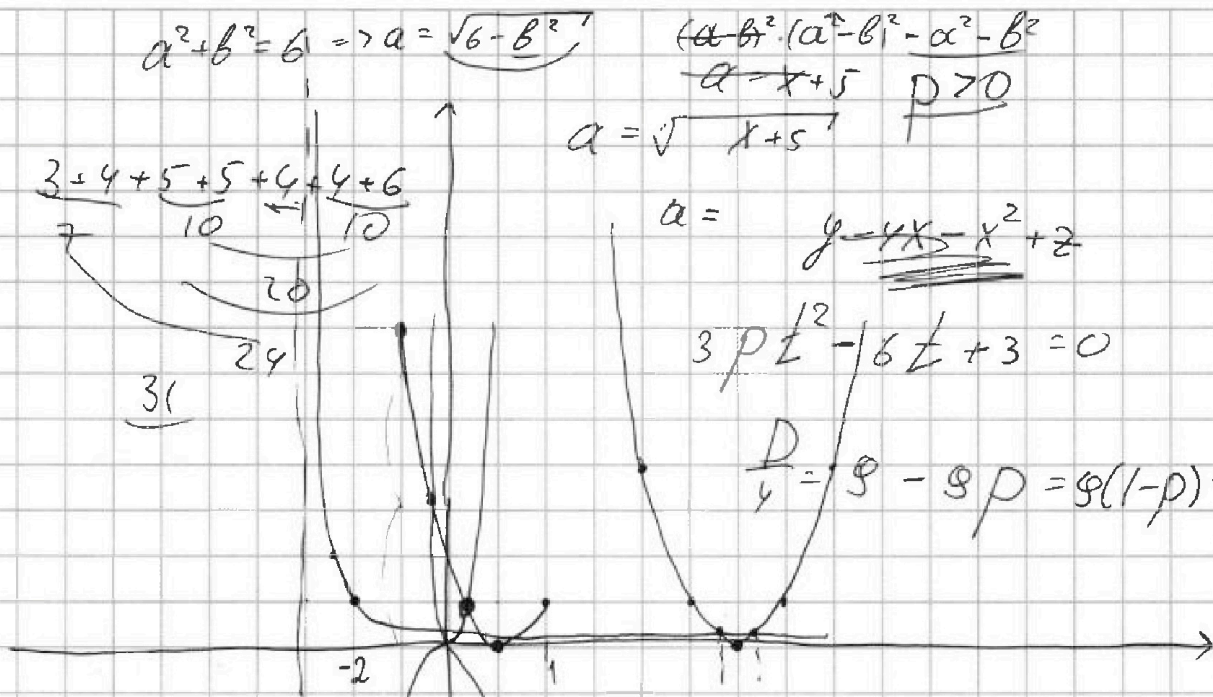 a²+b²=6 => a = √(6-b²)
(a-b)²·(a²-b)²-a²-b²
a = x+5 p>0
a = √(x+5)
3+4+5+5+4+4+6
7 10 10
a =
y-4x-x²+z
20
24
3pt²-6t+3=0
31
D/4 = 9-9p = 9(1-p)
-2 1 1